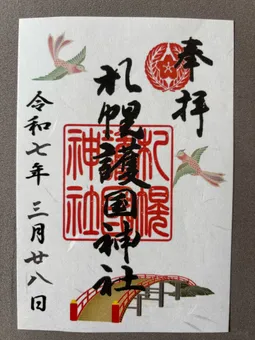 奉拝
札幌護国神社
札幌
護国
神社
令和七年 三月廿八日